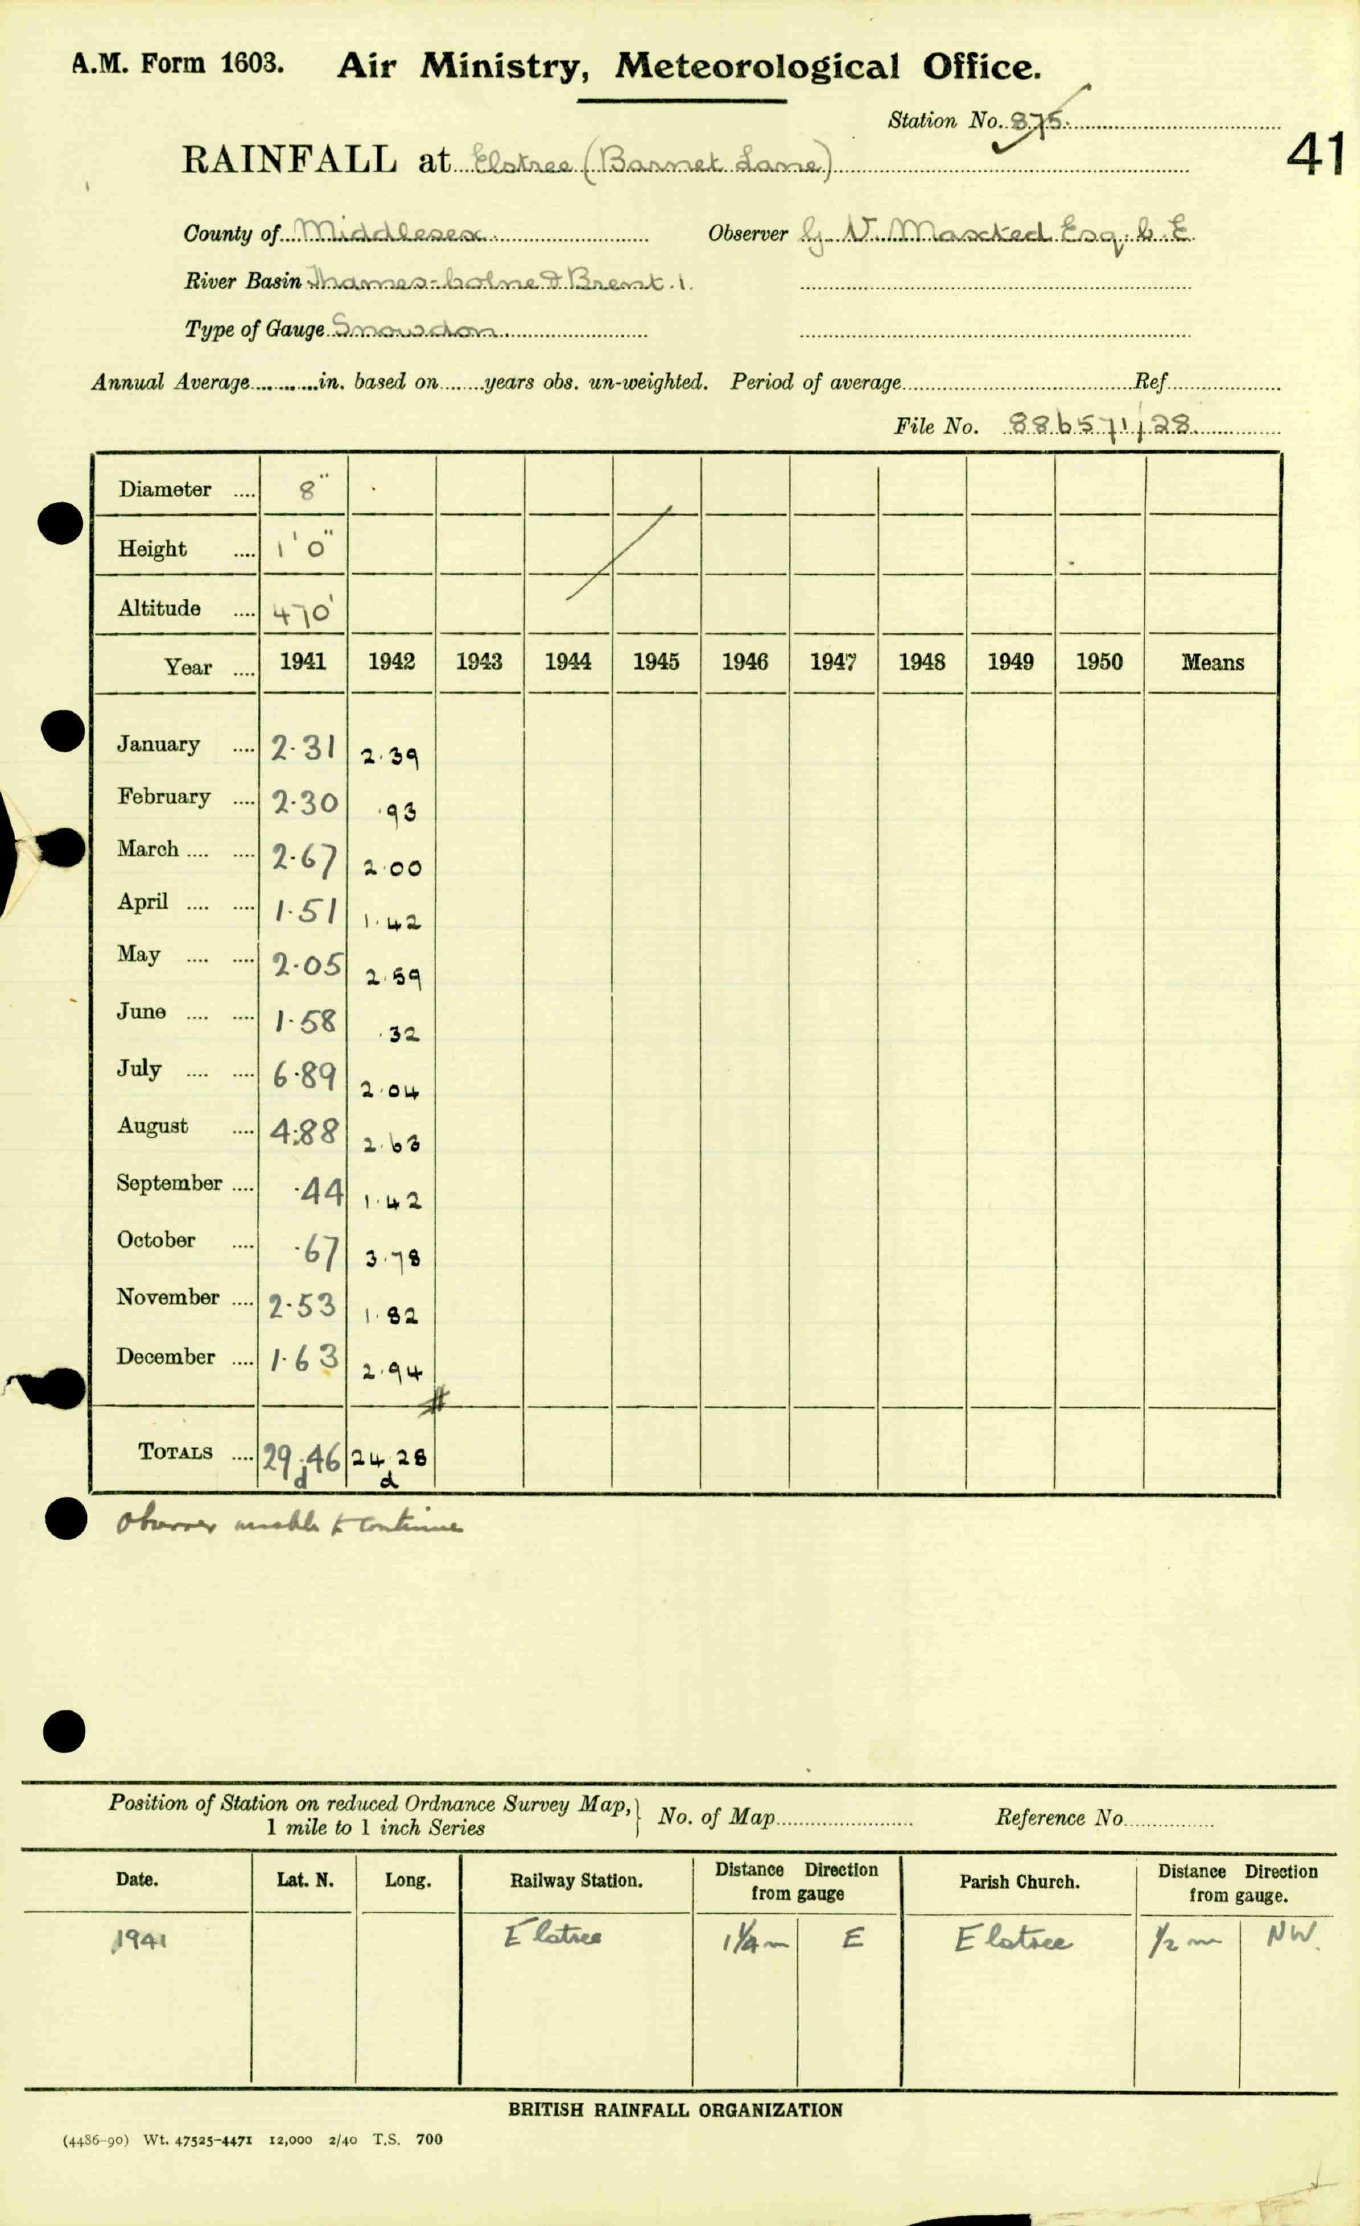 A.M. Form 1603. Air Ministry, Meteorological Office.
Station No. 875.
41
RAINFALL at Elstree (Barnet Lane)
County of Middlesex. Observer G. V. Maxted Esq. C.E.
River Basin Thames-Colne & Brent. 1.
Type of Gauge Snowdon
Annual Average............in. based on........years obs. un-weighted. Period of average........................Ref............
File No. 886571/28
Diameter .... 8"
Height .... 1' 0"
Altitude .... 470'
Year .... 1941 1942 1943 1944 1945 1946 1947 1948 1949 1950 Means
January .... 2.31 2.39
February .... 2.30 .93
March .... .... 2.67 2.00
April .... .... 1.51 1.42
May .... .... 2.05 2.59
June .... .... 1.58 .32
July .... .... 6.89 2.04
August .... 4.88 2.63
September .... .44 1.42
October .... .67 3.78
November .... 2.53 1.82
December .... 1.63 2.94
TOTALS .... 29.46 24.28
d d
Observer unable to continue
Position of Station on reduced Ordnance Survey Map,
1 mile to 1 inch Series
No. of Map.................... Reference No................
Date. Lat. N. Long. Railway Station. Distance Direction from gauge Parish Church. Distance Direction from gauge.
1941 Elstree 1¼ m E Elstree ½ m NW.
BRITISH RAINFALL ORGANIZATION
(4486-90) Wt. 47525-4471 12,000 2/40 T.S. 700